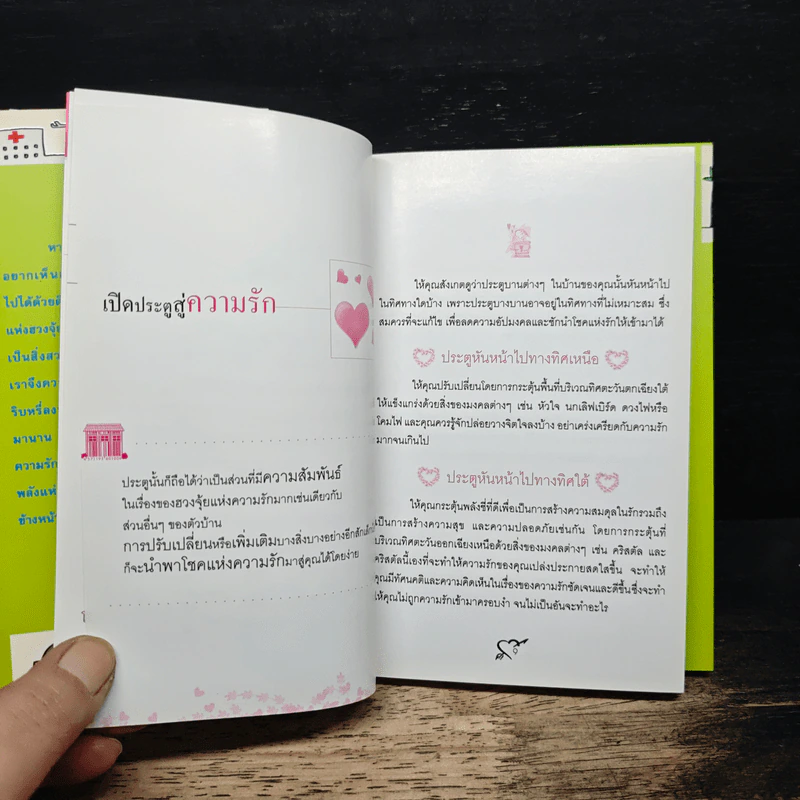 อยากเห็น
ไปได้ด้วย
แห่งฮวงจุ้ย
เป็นสิ่ง
เราจึง
มานาน
ความรัก
พลังแห่
ข้างหน้
เปิดประตูสู่ความรัก
ประตูนั้นก็ถือได้ว่าเป็นส่วนที่มีความสัมพันธ์
ในเรื่องของฮวงจุ้ยแห่งความรักมากเช่นเดียวกับ
ส่วนอื่นๆ ของตัวบ้าน
การปรับเปลี่ยนหรือเพิ่มเติมบางสิ่งบางอย่างอีกสักเล็ก
ก็จะนำพาโชคแห่งความรักมาสู่คุณได้โดยง่าย
ให้คุณสังเกตดูว่าประตูบานต่างๆ ในบ้านของคุณนั้นหันหน้าไป
ในทิศทางใดบ้าง เพราะประตูบางบานอาจอยู่ในทิศทางที่ไม่เหมาะสม ซึ่ง
สมควรที่จะแก้ไข เพื่อลดความอัปมงคลและชักนำโชคแห่งรักให้เข้ามาได้
ประตูหันหน้าไปทางทิศเหนือ
ให้คุณปรับเปลี่ยนโดยการกระตุ้นพื้นที่บริเวณทิศตะวันตกเฉียงใต้
ให้แข็งแกร่งด้วยสิ่งของมงคลต่างๆ เช่น หัวใจ นกเลิฟเบิร์ด ดวงไฟหรือ
โคมไฟ และคุณควรรู้จักปล่อยวางจิตใจลงบ้าง อย่าเคร่งเครียดกับความรัก
มากจนเกินไป
ประตูหันหน้าไปทางทิศใต้
ให้คุณกระตุ้นพลังชี่ที่ดีเพื่อเป็นการสร้างความสมดุลในรักรวมถึง
เป็นการสร้างความสุข และความปลอดภัยเช่นกัน โดยการกระตุ้นที่
บริเวณทิศตะวันออกเฉียงเหนือด้วยสิ่งของมงคลต่างๆ เช่น คริสตัล และ
คริสตัลนี้เองที่จะทำให้ความรักของคุณเปล่งประกายสดใสขึ้น จะทำให้
คุณมีทัศนคติและความคิดเห็นในเรื่องของความรักชัดเจนและดีขึ้นซึ่งจะทำ
ให้คุณไม่ถูกความรักเข้ามาครอบงำ จนไม่เป็นอันจะทำอะไร